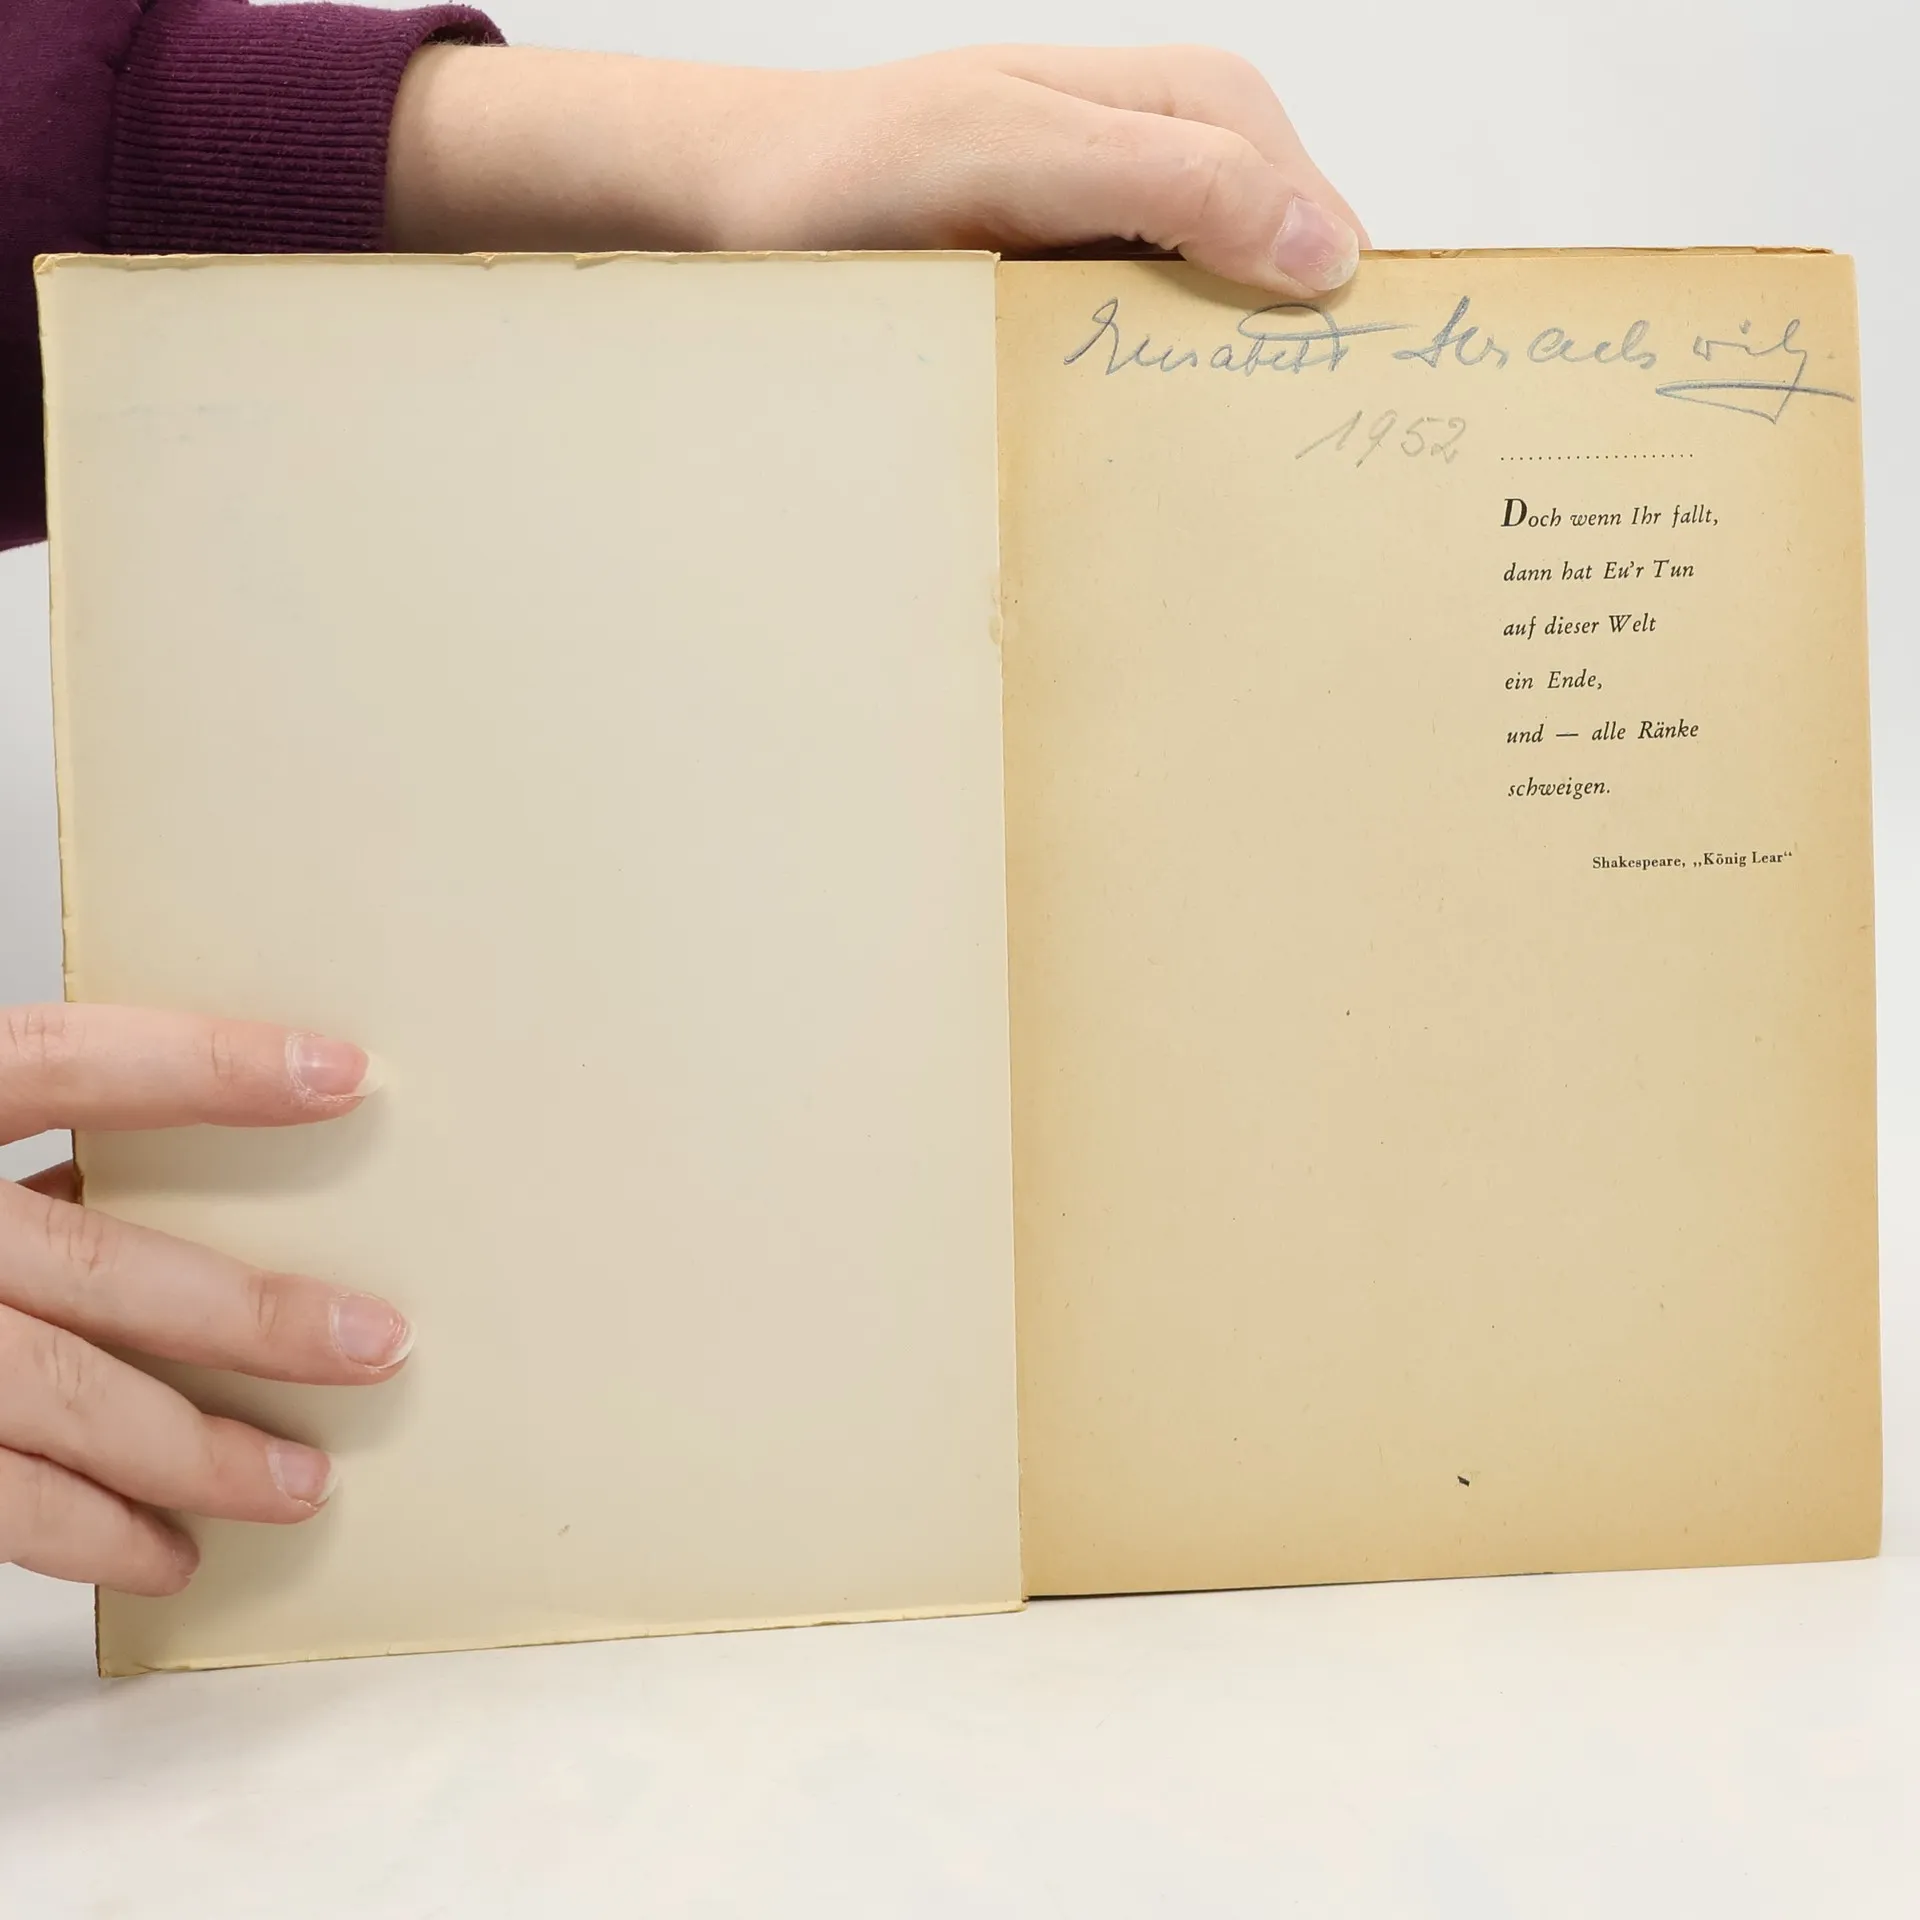 Elisabeth
1952
.....................
Doch wenn Ihr fallt,
dann hat Eu'r Tun
auf dieser Welt
ein Ende,
und — alle Ränke
schweigen.
Shakespeare, „König Lear“